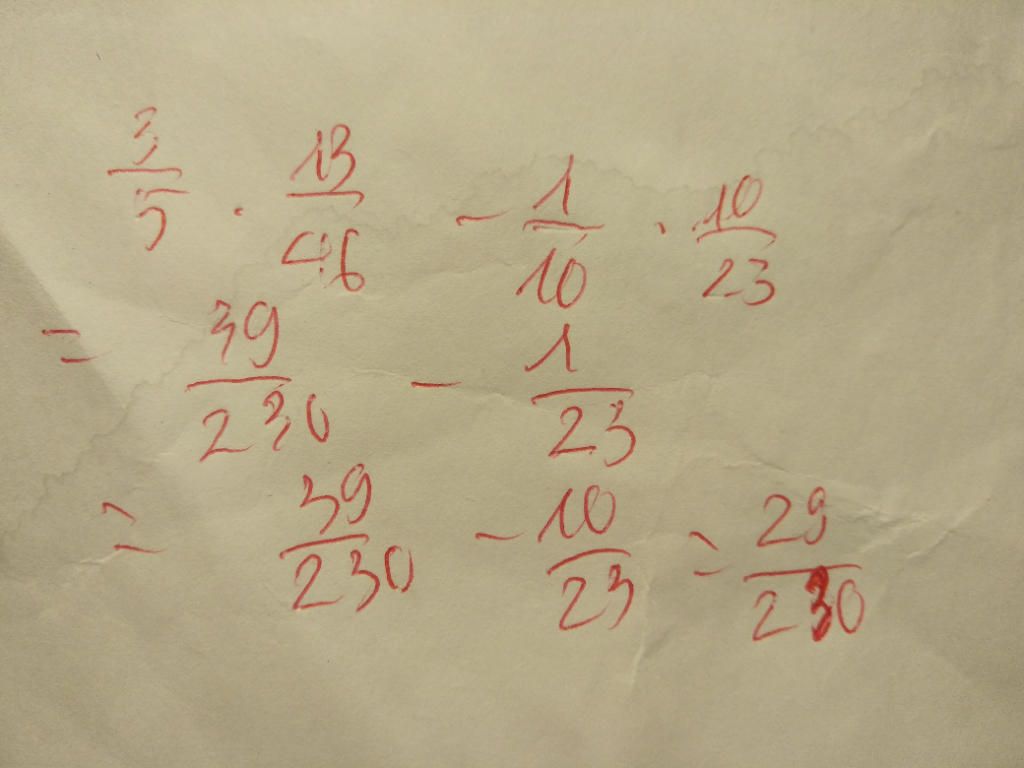 3/5 · 13/46 - 1/10 · 10/23
= 39/230 - 1/23
= 39/230 - 10/23 = 29/230